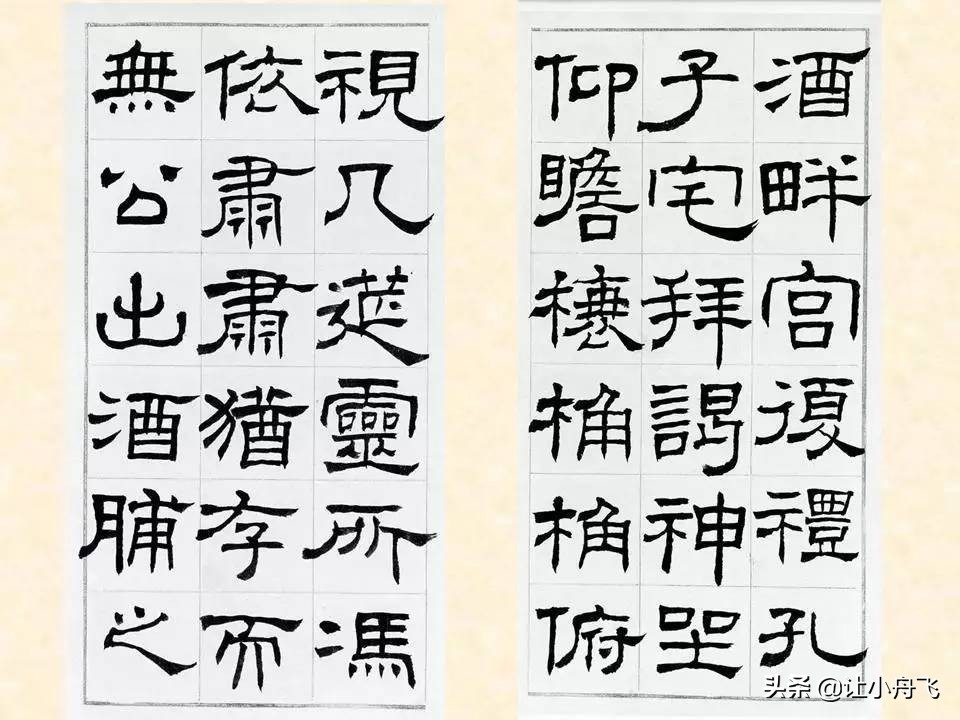 酒畔宮復禮孔
子宅拜謁神坐
仰瞻榱桷桷俯
視几筵靈所馮
依肅肅猶存而
無公出酒脯之
头条 @让小舟飞